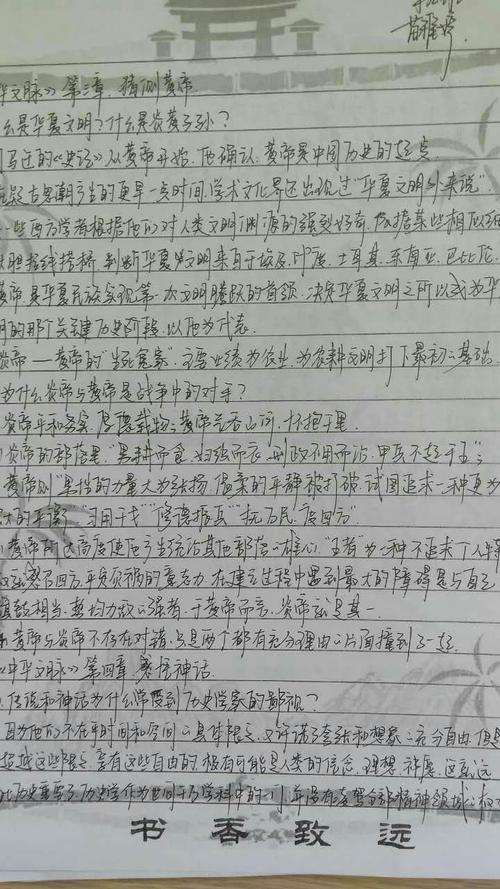 苗雅婷
华文脉》第三章 猜测黄帝
么是华夏文明?什么是炎黄子孙?
司马迁的《史记》从黄帝开始,他确认:黄帝是中国历史的起点
在疑古思潮产生的更早一点时间,学术文化界还出现过“华夏文明外来说”
一些西方学者根据他们对人类文明渊源的强烈好奇,依据某些相似细
大胆搭线搭桥,判断华夏文明来自于埃及、印度、土耳其、东南亚、巴比伦
黄帝是华夏民族实现第一次文明腾跃的首领,决定华夏文明之所以成为华
明的那个关键历史阶段,以他为代表。
炎帝——黄帝的“生死冤家”,主要业绩为农业,为农耕文明打下最初的基础
为什么炎帝与黄帝是战争中的对手?
炎帝平和务实,厚德载物;黄帝气吞山河,怀抱千里
炎帝的部落里“男耕而食,妇织而衣,刑政不用而治,甲兵不起于王”;
黄帝则“男性的力量大为张扬,温柔的平静被打破,试图追求一种更为
大的平静”“习用干戈”“修德振兵”“抚万民,度四方”
黄帝所达高度使他产生统治其他部落的雄心,“王者”为一种不求个人
四方,平灾领祸的意志力,在建立过程中遇到最大的障碍是与自己
智能相当,势均力敌的强者,于黄帝而言,炎帝就是其一
黄帝与炎帝不存在对错,只是两个都有充分理由的片面撞到了一起
《中华文脉》第四章 感悟神话
传说和神话为什么常受到历史学家的鄙视?
因为他们不在乎时间和空间的具体限定,又许诺了夸张和想象的充分自由,但是
超越这些限定,享有这些自由的,极有可能是人类的信念、理想、祈愿,这就远
比历史重要了。历史学作为世间千万学科中的一门,并没有凌驾全部精神领域的权
书香致远